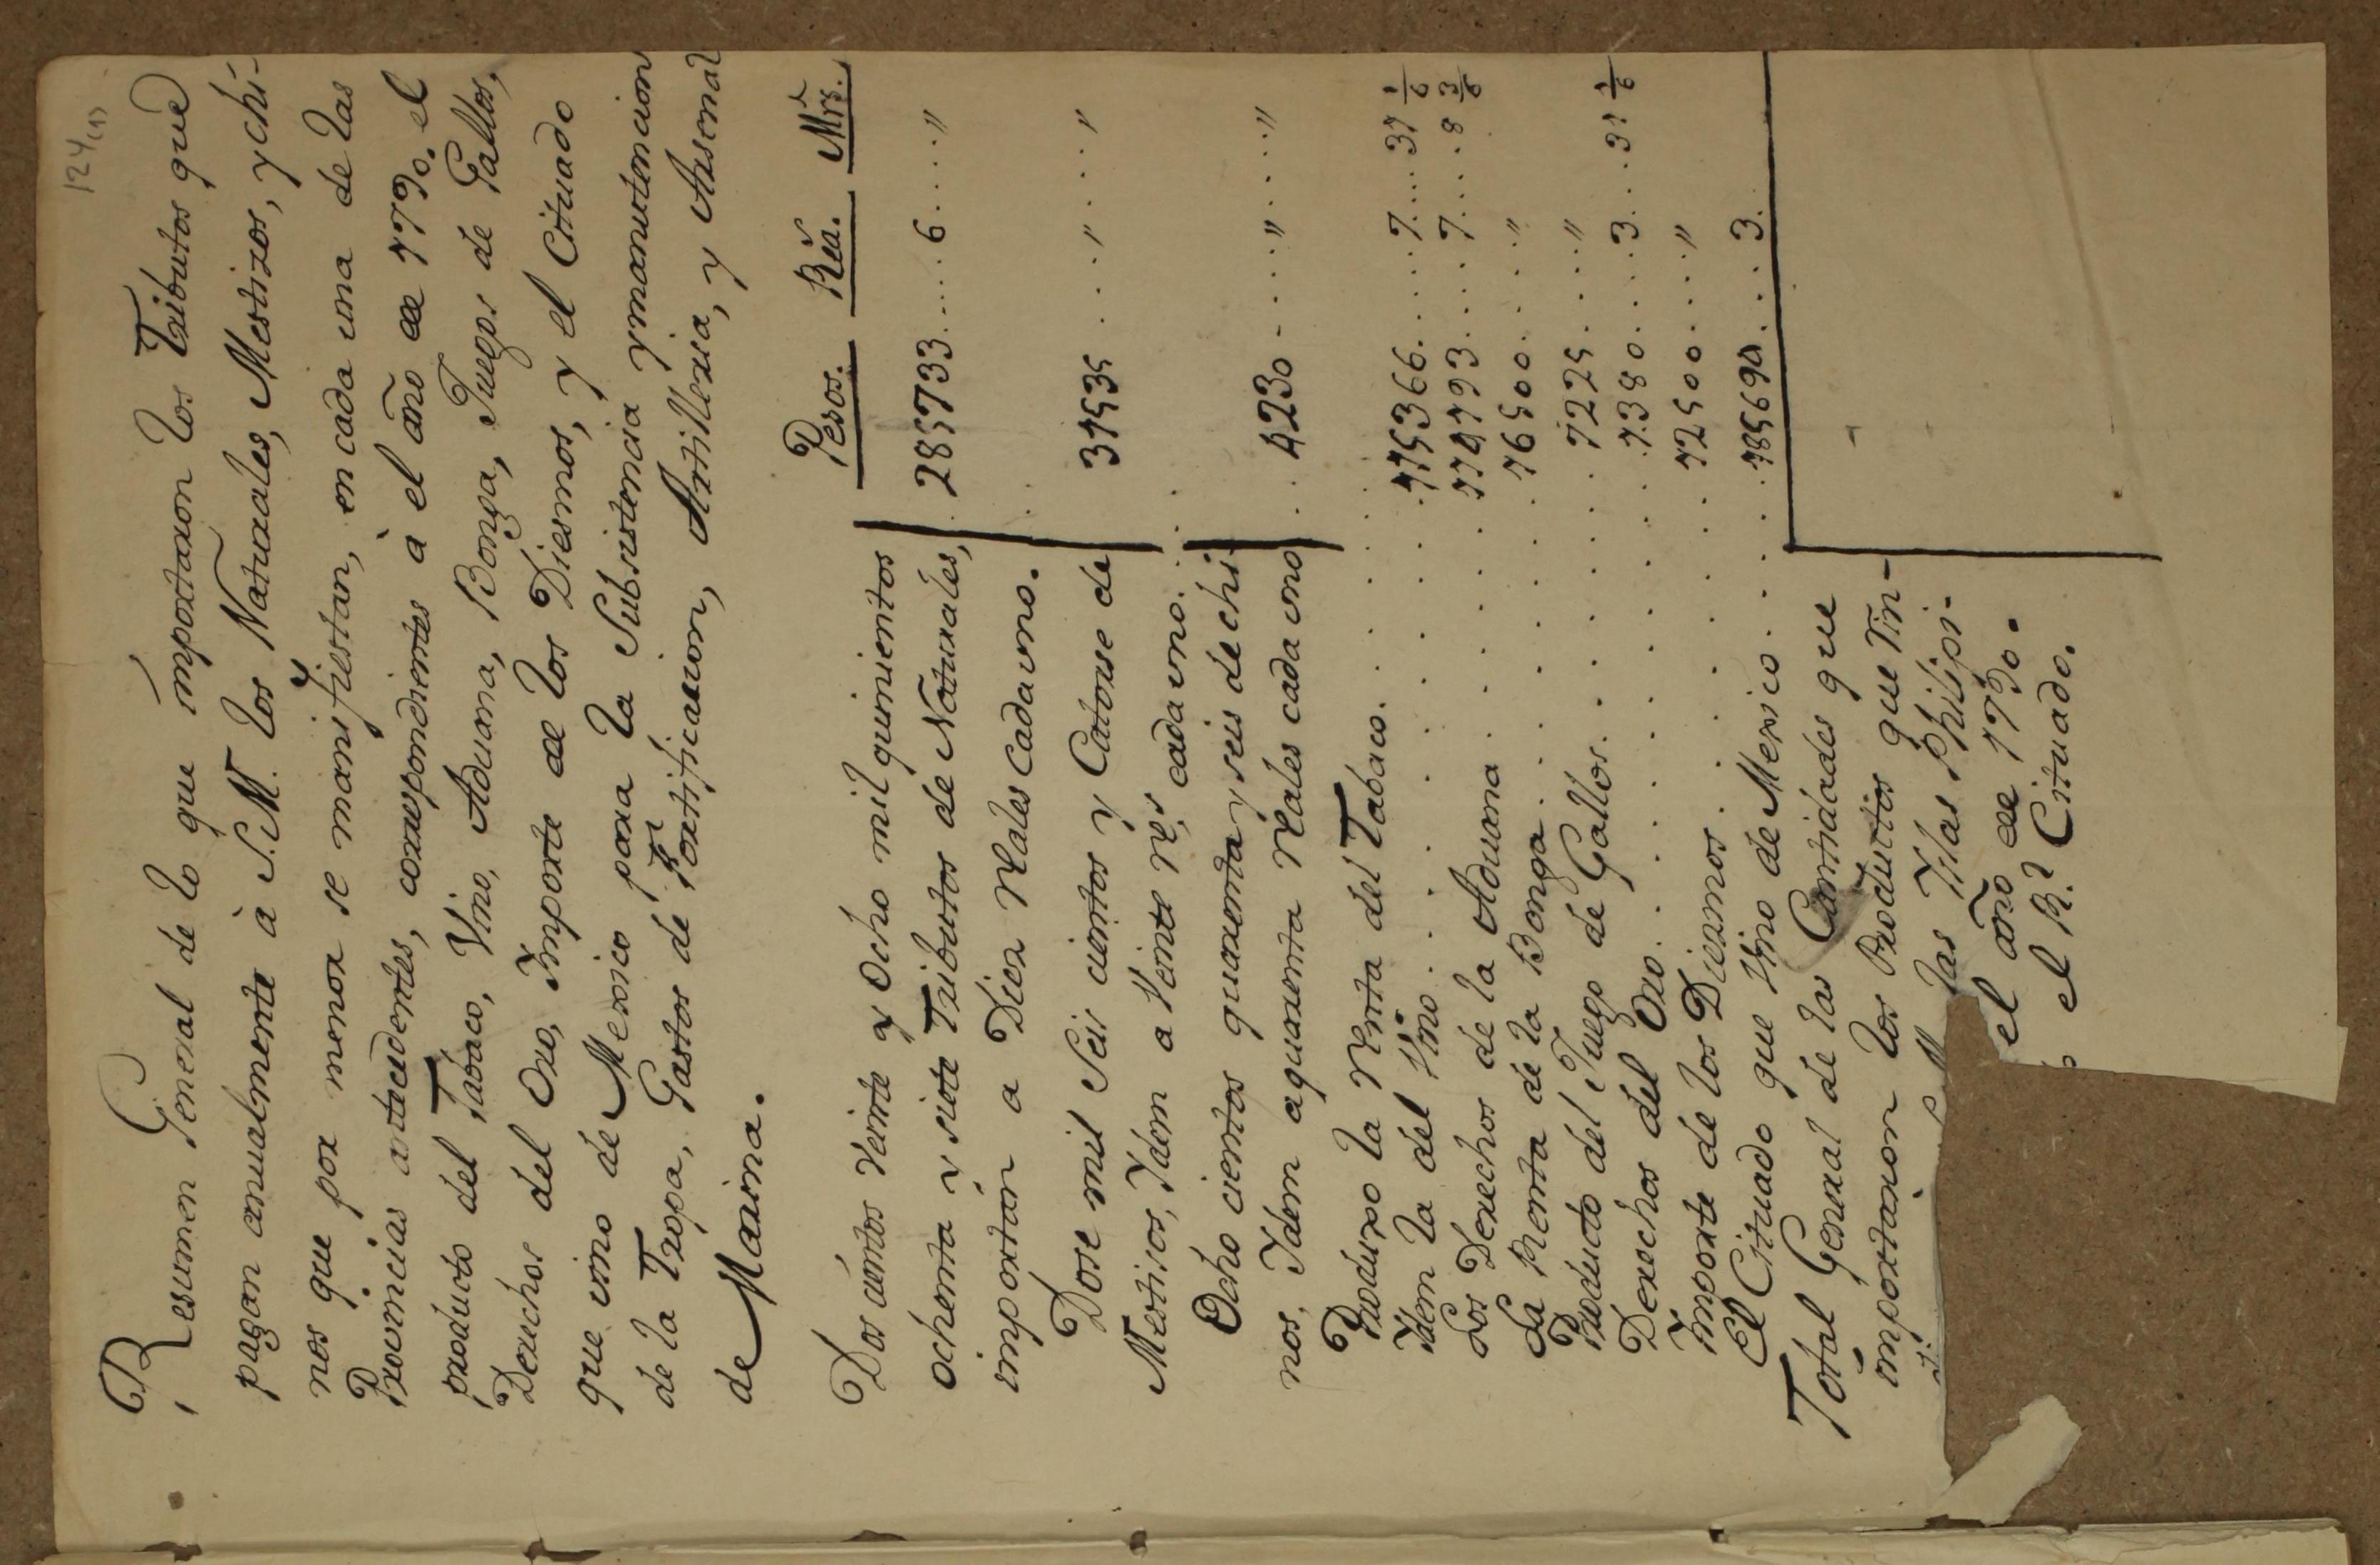 124
Resumen General de lo que importaron los Tributos que
pagan anualmente à S.M. los Naturales, Mestizos, y chi-
nos que por menor se manifiestan, en cada una de las
Provincias antecedentes, correspondientes à el año de 1790. el
producto del Tabaco, Vino, Aduana, Bonga, Juegos de Gallos,
Derechos del Oro, Importe de los Diesmos, y el Cituado
que vino de Mexico para la Subsistencia y manutencion
de la Tropa, Gastos de Fortificacion, Artilleria, y Arsenal
de Marina.
Pesos. Rea.s Mrs.
Dos cientos veinte y Ocho mil quinientos
ochenta y siete Tributos de Naturales,
importan a Diez Reales cada uno. 285733 6 "
Dose mil Seis cientos y Catorse de
Mestisos, Idem a Veinte R.s cada uno. 31535 " "
Ocho cientos quarenta y seis de chi-
nos, Idem a quarenta Reales cada uno 4230 " "
Produxo la Renta del Tabaco 115366 7 31 1/6
Idem la del Vino 114193 7 8 3/6
Los Derechos de la Aduana 16500 "
La Renta de la Bonga 7225 "
Producto del Juego de Gallos 1380 3 31 1/6
Derechos del Oro 12500 "
Importe de los Diezmos
El Cituado que Vino de Mexico 185694 3
Total General de las Cantidades que
importaron los Productos que tin-
las Yslas Philipi-
el año de 1790.
el R.l Cituado.